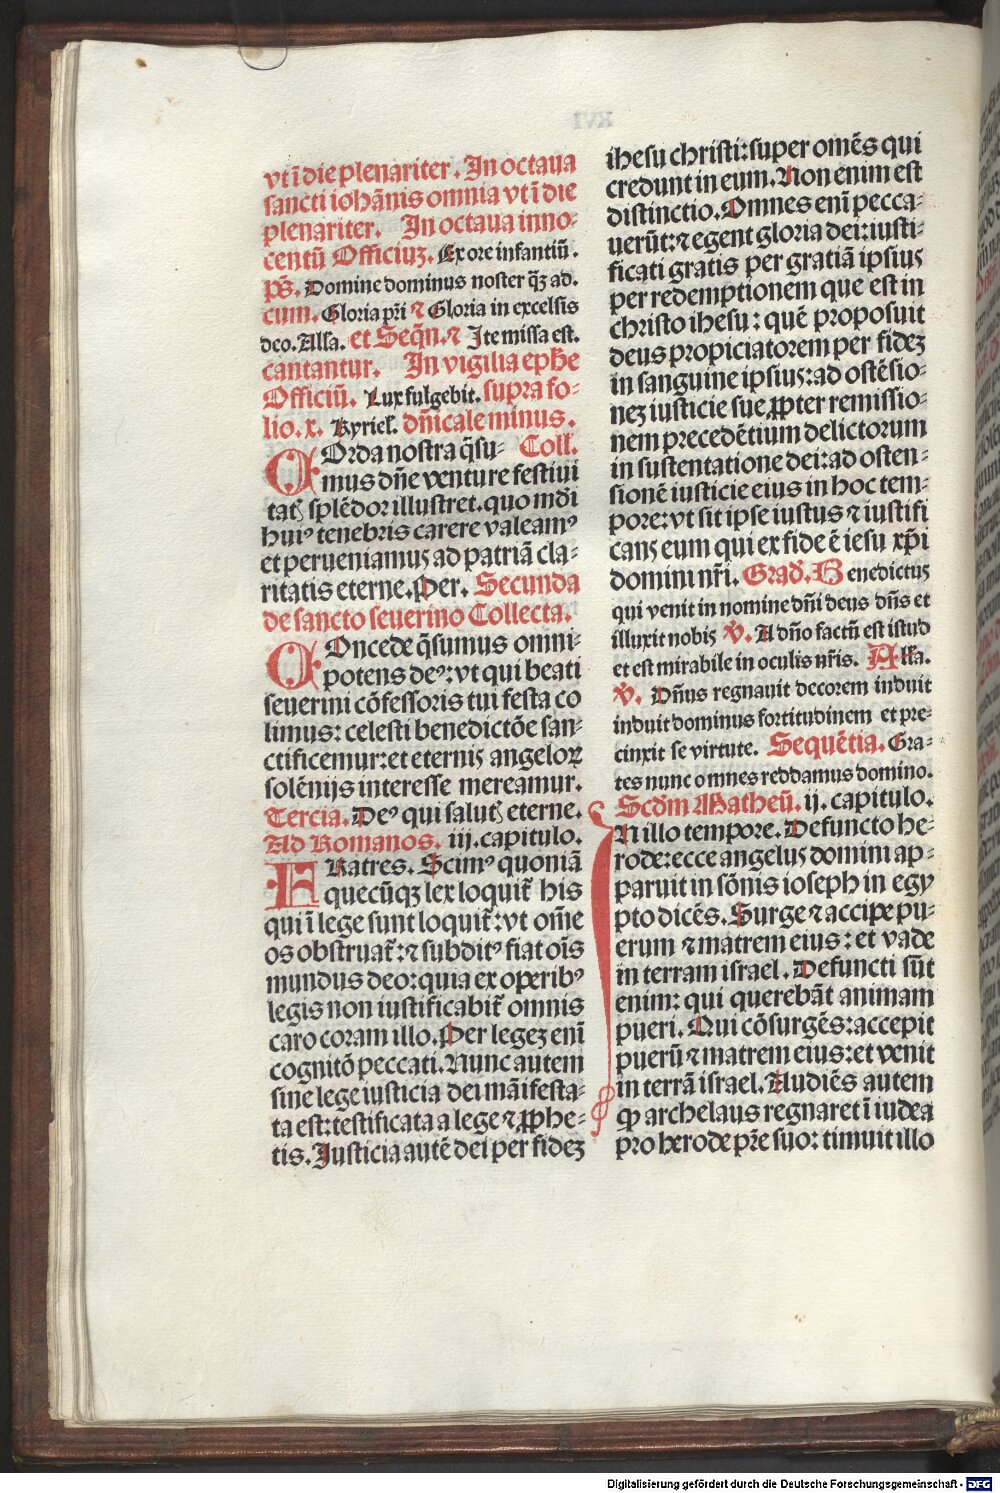 vt ī die plenariter. In octaua
sancti iohānis omnia vt ī die
plenariter. In octaua inno⸗
centū Officiuȝ. Ex ore infantiū.
p̄s. Domine dominus noster q̄ȝ ad.
cum. Gloria pr̄i ⁊ Gloria in excelsis
deo. All'a. et Seq̄n. ⁊ Ite missa est.
cantantur. In vigilia epħe
Officiū. Lux fulgebit. supra fo⸗
lio. x. Kyriel'. dn̄icale minus.
COrda nostra q̄su⸗ Coll.
mus dn̄e venture festiui
tatꝭ splēdor illustret. quo mūdi
huiꝰ tenebris carere valeamꝰ
et perueniamus ad patriā cla⸗
ritatis eterne. Per. Secunda
de sancto seuerino Collecta.
COncede q̄sumus omni⸗
potens deꝰ: vt qui beati
seuerini cōfessoris tui festa co
limus: celesti benedictōe san⸗
ctificemur: et eternis angeloꝝ
solēnijs interesse mereamur.
Tercia. Deꝰ qui salutꝭ eterne.
Ad Romanos. iij. capitulo.
FRatres. Scimꝰ quoniā
quecūqȝ lex loquit᷑ his
qui ī lege sunt loquit᷑: vt om̄e
os obstruat᷑: ⁊ subditꝰ fiat oīs
mundus deo: quia ex operibꝰ
legis non iustificabit᷑ omnis
caro coram illo. Per legeȝ enī
cognitō peccati. Nunc autem
sine lege iusticia dei māifesta⸗
ta est: testificata a lege ⁊ ꝓphe⸗
tis. Iusticia autē dei per fideȝ
ihesu christi: super omēs qui
credunt in eum. Non enim est
distinctio. Omnes enī pecca⸗
uerūt: ⁊ egent gloria dei: iusti⸗
ficati gratis per gratiā ipsius
per redemptionem que est in
christo ihesu: quē proposuit
deus propiciatorem per fideȝ
in sanguine ipsius: ad ostēsio⸗
neȝ iusticie sue ꝓpter remissio⸗
nem precedētium delictorum
in sustentatione dei: ad osten⸗
sionē iusticie eius in hoc tem⸗
pore: vt sit ipse iustus ⁊ iustifi
cans eum qui ex fide ē iesu xp̄i
domini nr̄i. Grad̄. Benedictus
qui venit in nomine dn̄i deus dn̄s et
illuxit nobis ℣. A dn̄o factū est istud
et est mirabile in oculis nr̄is. All'a.
℣. Dn̄us regnauit decorem induit
induit dominus fortitudinem et pre⸗
cinxit se virtute. Sequētia. Gra⸗
tes nunc omnes reddamus domino.
Scd̄m Matheū. ij. capitulo.
IN illo tempore. Defuncto he⸗
rode: ecce angelus domini ap⸗
paruit in sōnis ioseph in egy
pto dicēs. Surge ⁊ accipe pu⸗
erum ⁊ matrem eius: et vade
in terram israel. Defuncti sūt
enim: qui querebāt animam
pueri. Qui cōsurgēs: accepit
puerū ⁊ matrem eius: et venit
in terrā israel. Audiēs autem
ꝙ archelaus regnaret ī iudea
pro herode pr̄e suo: timuit illo
Digitalisierung gefördert durch die Deutsche Forschungsgemeinschaft - DFG